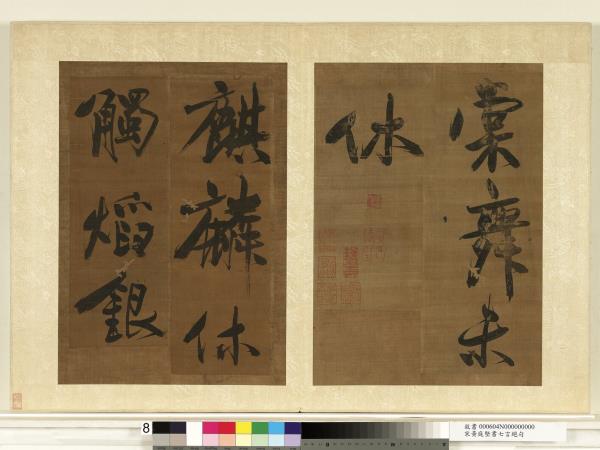 裳舞未
休
麒麟休
觸焰銀
8
故書 000604N000000000
宋黃庭堅書七言絕句